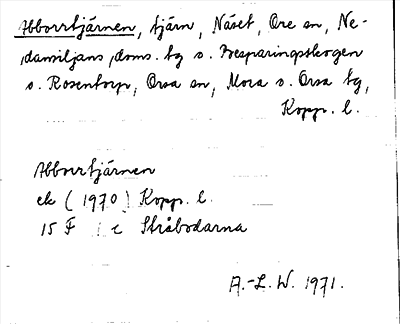 Abborrtjärnen, tjärn, Näset, Ore sn, Ne-
dansiljans doms. tg o. Besparingsskogen
o. Rosentorp, Orsa sn, Mora o. Orsa tg,
Kopp. l.
Abborrtjärnen
ek (1970) Kopp. l.
15 F c Stråbodarna
A.-L. W. 1971.